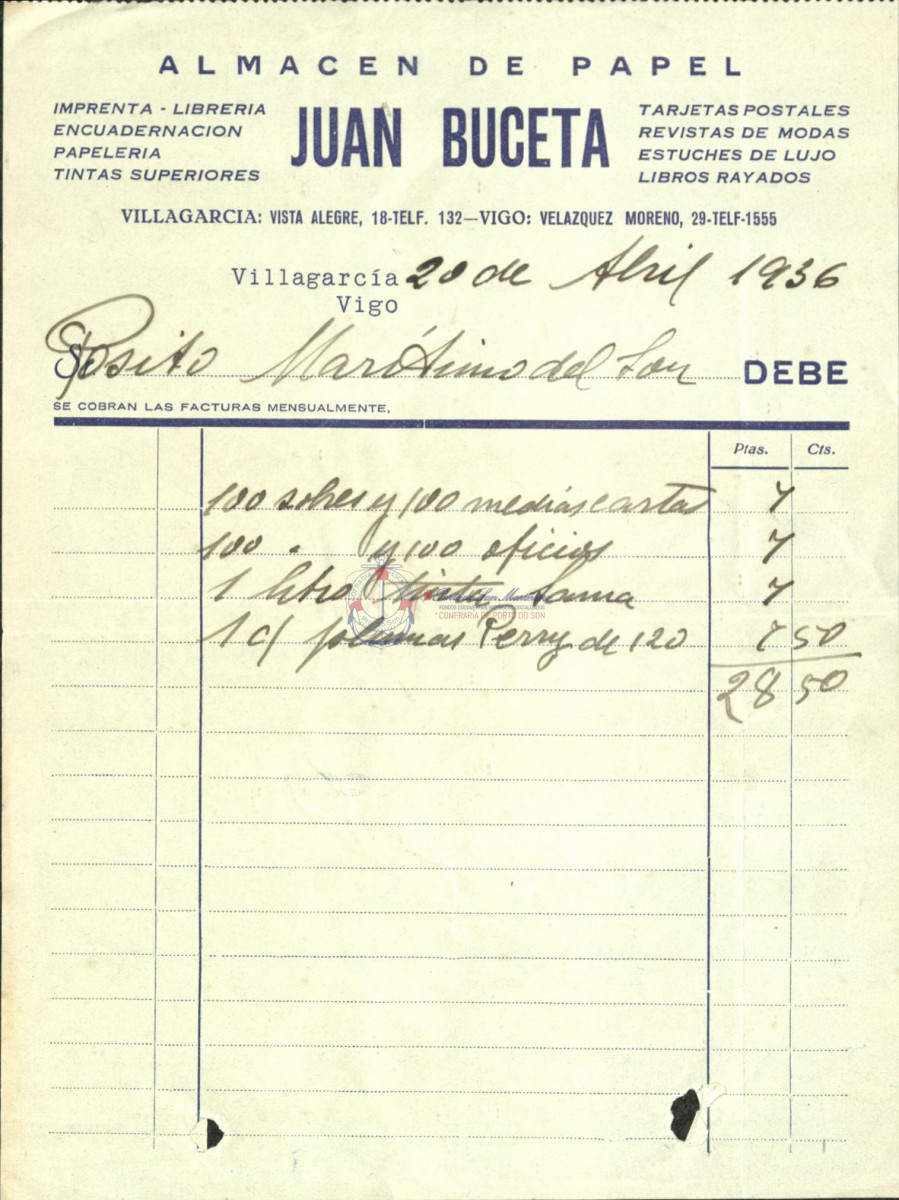 ALMACEN DE PAPEL
IMPRENTA - LIBRERIA
ENCUADERNACION
PAPELERIA
TINTAS SUPERIORES
JUAN BUCETA
TARJETAS POSTALES
REVISTAS DE MODAS
ESTUCHES DE LUJO
LIBROS RAYADOS
VILLAGARCIA: VISTA ALEGRE, 18-TELF. 132—VIGO: VELAZQUEZ MORENO, 29-TELF-1555
Villagarcía 20 de Abril 1936
Vigo
Posito Marítimo del Son DEBE
SE COBRAN LAS FACTURAS MENSUALMENTE,
Ptas. Cts.
100 sobres y 100 medias cartas 7
100 " y 100 oficios 7
1 litro tinta Sama 7
CONFRARÍA DE PORTO DO SON
1 c/ plumas Perry de 120 7 50
28 50